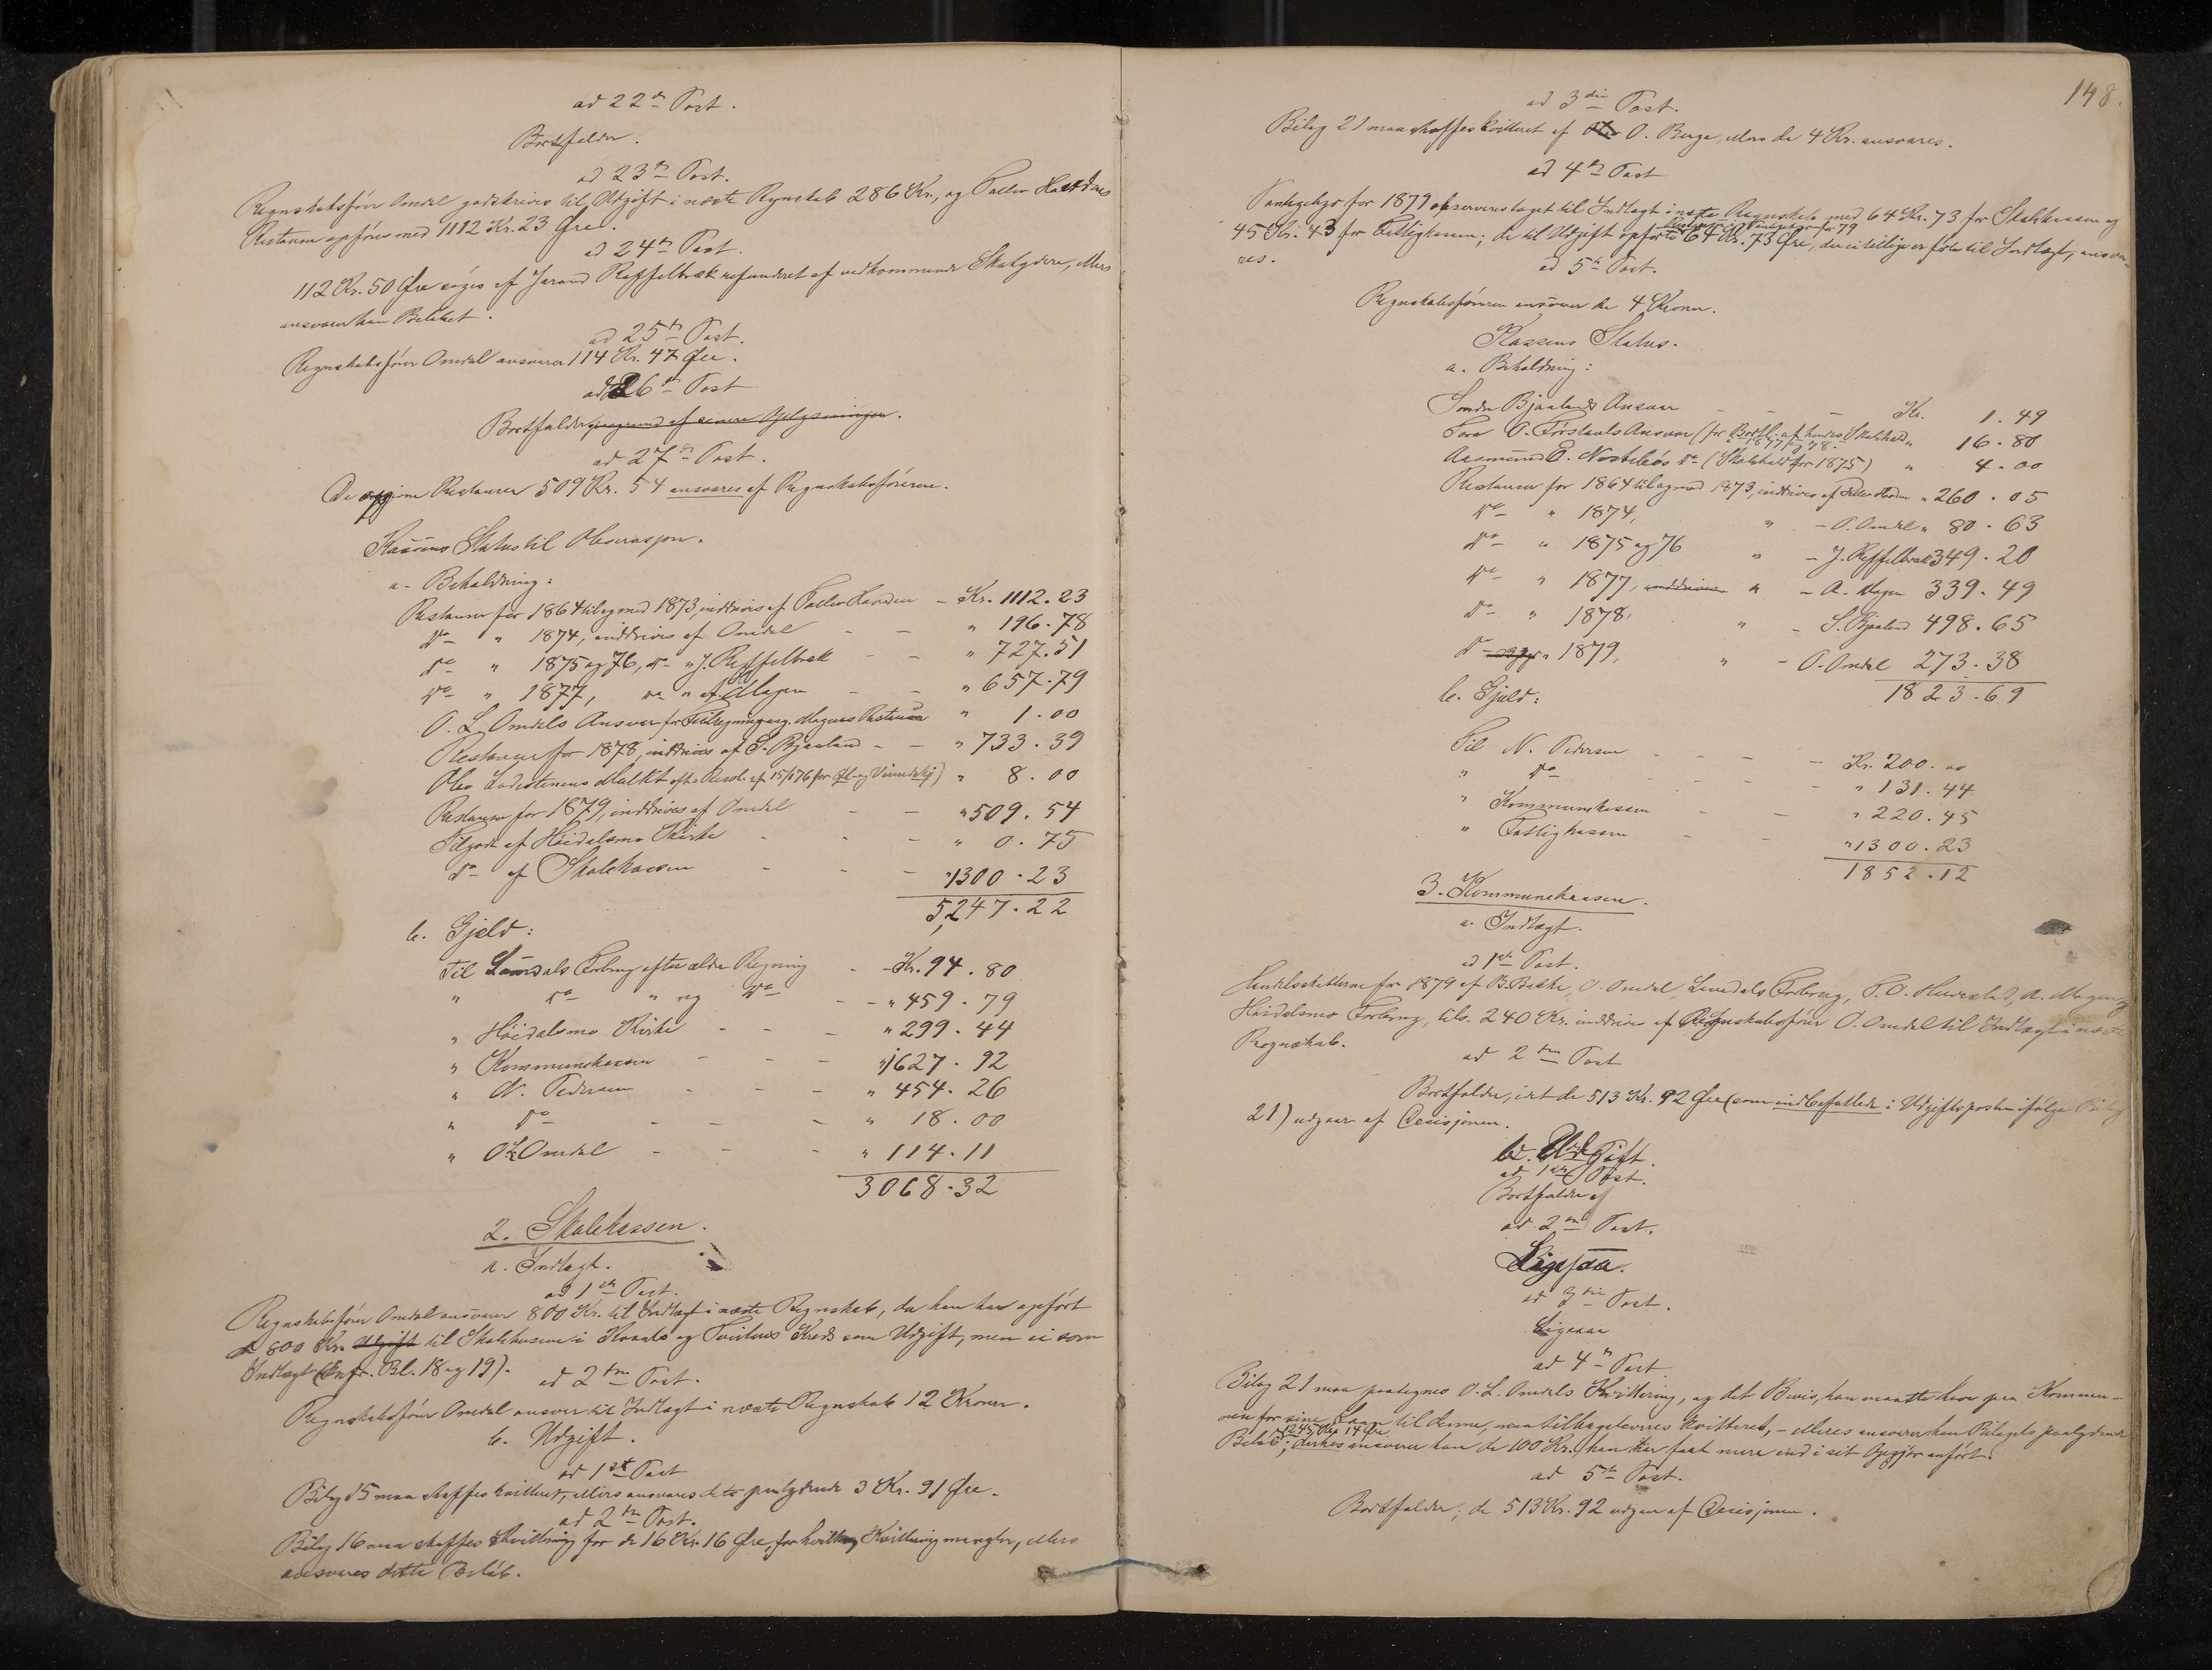 ad 22de Post.
Bortfalder.
ad 23de Post.
Regnskabsfører Omdal godskrives til Udgift i næste Regnskab 286 Kr., og
Restancer opføres med 1112 Kr. 23 Øre.
ad 24de Post.
112 Kr. 50 Øre søges af Jarand Reffelbræk refunderet af vedkommende Skatydere, ellers
ansvarer han Beløbet.
ad 25de Post.
Regnskabsfører Omdal ansvarer 114 Kr. 47 Øre.
ad 26de Post
Bortfalder paagrund af senere Oplysninger.
ad 27de Post.
De opgivne Restancer 509 Kr. 54 ansvares af Regnskabsføreren.
Kassens Status til Observasjon.
a. Beholdning:
Restancer for 1864 til og med 1873, inddrives af - Kr. 1112.23
Do " 1874, inddrives af Omdal - - " 196.78
Do " 1875 og 76, Do " J. Reffelbræk - - " 727.51
Do " 1877, Do " af A. Mogen - - " 657.79
O. L. Omdals Ansvar for Restancer " 1.00
Restancer for 1878, inddrives af S. Bjaaland - - " 733.39
Olav Mulkt efter Resol. af 15/6 76 for Øl- og " 8.00
Restancer for 1879, inddrives af Omdal - - " 509.54
Tilgode af Høidalsmo Kirke - - - " 0.75
Do af Skolekassen - - - " 1300.23
5,247.22
b. Gjeld:
Til Laurdals Forbrug efter ældre Regning - - Kr. 94.80
" Do " ny Do - - " 459.79
" Høidalsmo Kirke - - - " 299.44
" Kommunekassen - - - " 1627.92
" N. Pedersen - - - " 454.26
" Do - - - " 18.00
" O. L. Omdal - - - " 114.11
3068.32
2. Skolekassen.
a. Indtægt.
ad 1ste Post.
Regnskabsfører Omdal ansvarer 800 Kr. til Indtægt i næste Regnskab, da han har opført
de 800 Kr. Udgift til Skolehusene i og Kreds som Udgift, men ei som
Indtægt (Cnfr. Bl. 18 og 19).
ad 2den Post.
Regnskabsfører Omdal ansvarer til Indtægt i næste Regnskab 12 Kroner.
b. Udgift.
ad 1ste Post
Bilag 15 maa skaffes kvitteret, ellers ansvares dets paalydende 3 Kr. 91 Øre.
ad 2den Post.
Bilag 16 maa skaffes Kvittering for de 16 Kr. 16 Øre, for hvilke Kvittering mangler, ellers
ansvares dette Beløb.
148.
ad 3die Post.
Bilag 21 maa skaffes kvitteret af O. Berge, ellers de 4 Kr. ansvares.
ad 4de Post
for 1879 observeres taget til Indtægt i næste Regnskab med 64 Kr. 73 for Skolekassen og
45 Kr. 43 for Fattigkassen; de til Udgift opførte 64 Kr. 73 Øre, der ei tillige er ført til Indtægt, ansva-
res.
ad 5te Post.
Regnskabsføreren ansvarer de 4 Kroner.
Kassens Status.
a. Beholdning:
Sondre Bjaalands Ansvar - - - Kr. 1.49
Tore O. Ansvar (for Bortfl. af Skolehold " 16.80
1877 og 78.
Aasmund E. Do (Skolehold for 1875) " 4.00
Restancer for 1864 til og med 1873, inddrives af " 260.05
Do " 1874, " - O. Omdal " 80.63
Do " 1875 og 76 " - J. Reffelbræk 349.20
Do " 1877, inddrives " - A. Mogen 339.49
Do " 1878, " - S. Bjaaland 498.65
Do " 1879, " - O. Omdal 273.38
1823.69
b. Gjeld:
Til N. Pedersen - - - - Kr. 200.00
" Do - - - " 131.44
" Kommunekassen - - " 220.45
" Fattigkassen - - " 1300.23
1852.12
3. Kommunekassen.
a. Indtægt.
ad 1ste Post.
Handelsskatterne for 1879 af B. Bakke, O. Omdal, Laurdals Forbrug, T. O. A. Mogen og
Høidalsmo Forbrug, tils. 240 Kr. inddrives af Regnskabsfører O. Omdal til Indtægt i næste
Regnskab.
ad 2den Post
Bortfalder, idet de 513 Kr. 92 Øre (som indbefattede i Udgiftsposten ifølge Bilag
21) udgaar af Decisjonen.
b. Udgift.
ad 1ste Post.
Bortfalder
ad 2den Post.
Ligesaa.
ad 3die Post.
Ligesaa
ad 4de Post
Bilag 21 maa paategnes O. L. Omdals Kvittering, og det Bevis, han maatte have paa Kommu-
nen for sine Laan til denne, maa tilbageleveres kvitteret, - ellers ansvarer han Bilagets paalydende
Beløb, 1245 Kr. 14 Øre; derhos ansvarer han de 100 Kr., han har faat mere end i sit Opgjør anført.
ad 5te Post.
Bortfalder; de 513 Kr. 92 udgaar af Decisjonen.